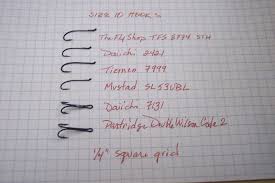 SIZE 10 HOOKS
The Fly Shop TFS 8774 STH
Daiichi 2421
Tiemen 7999
Mustad SL53UBL
Daiichi 7131
Partridge Double Wilson Code 2
1/4" square grid